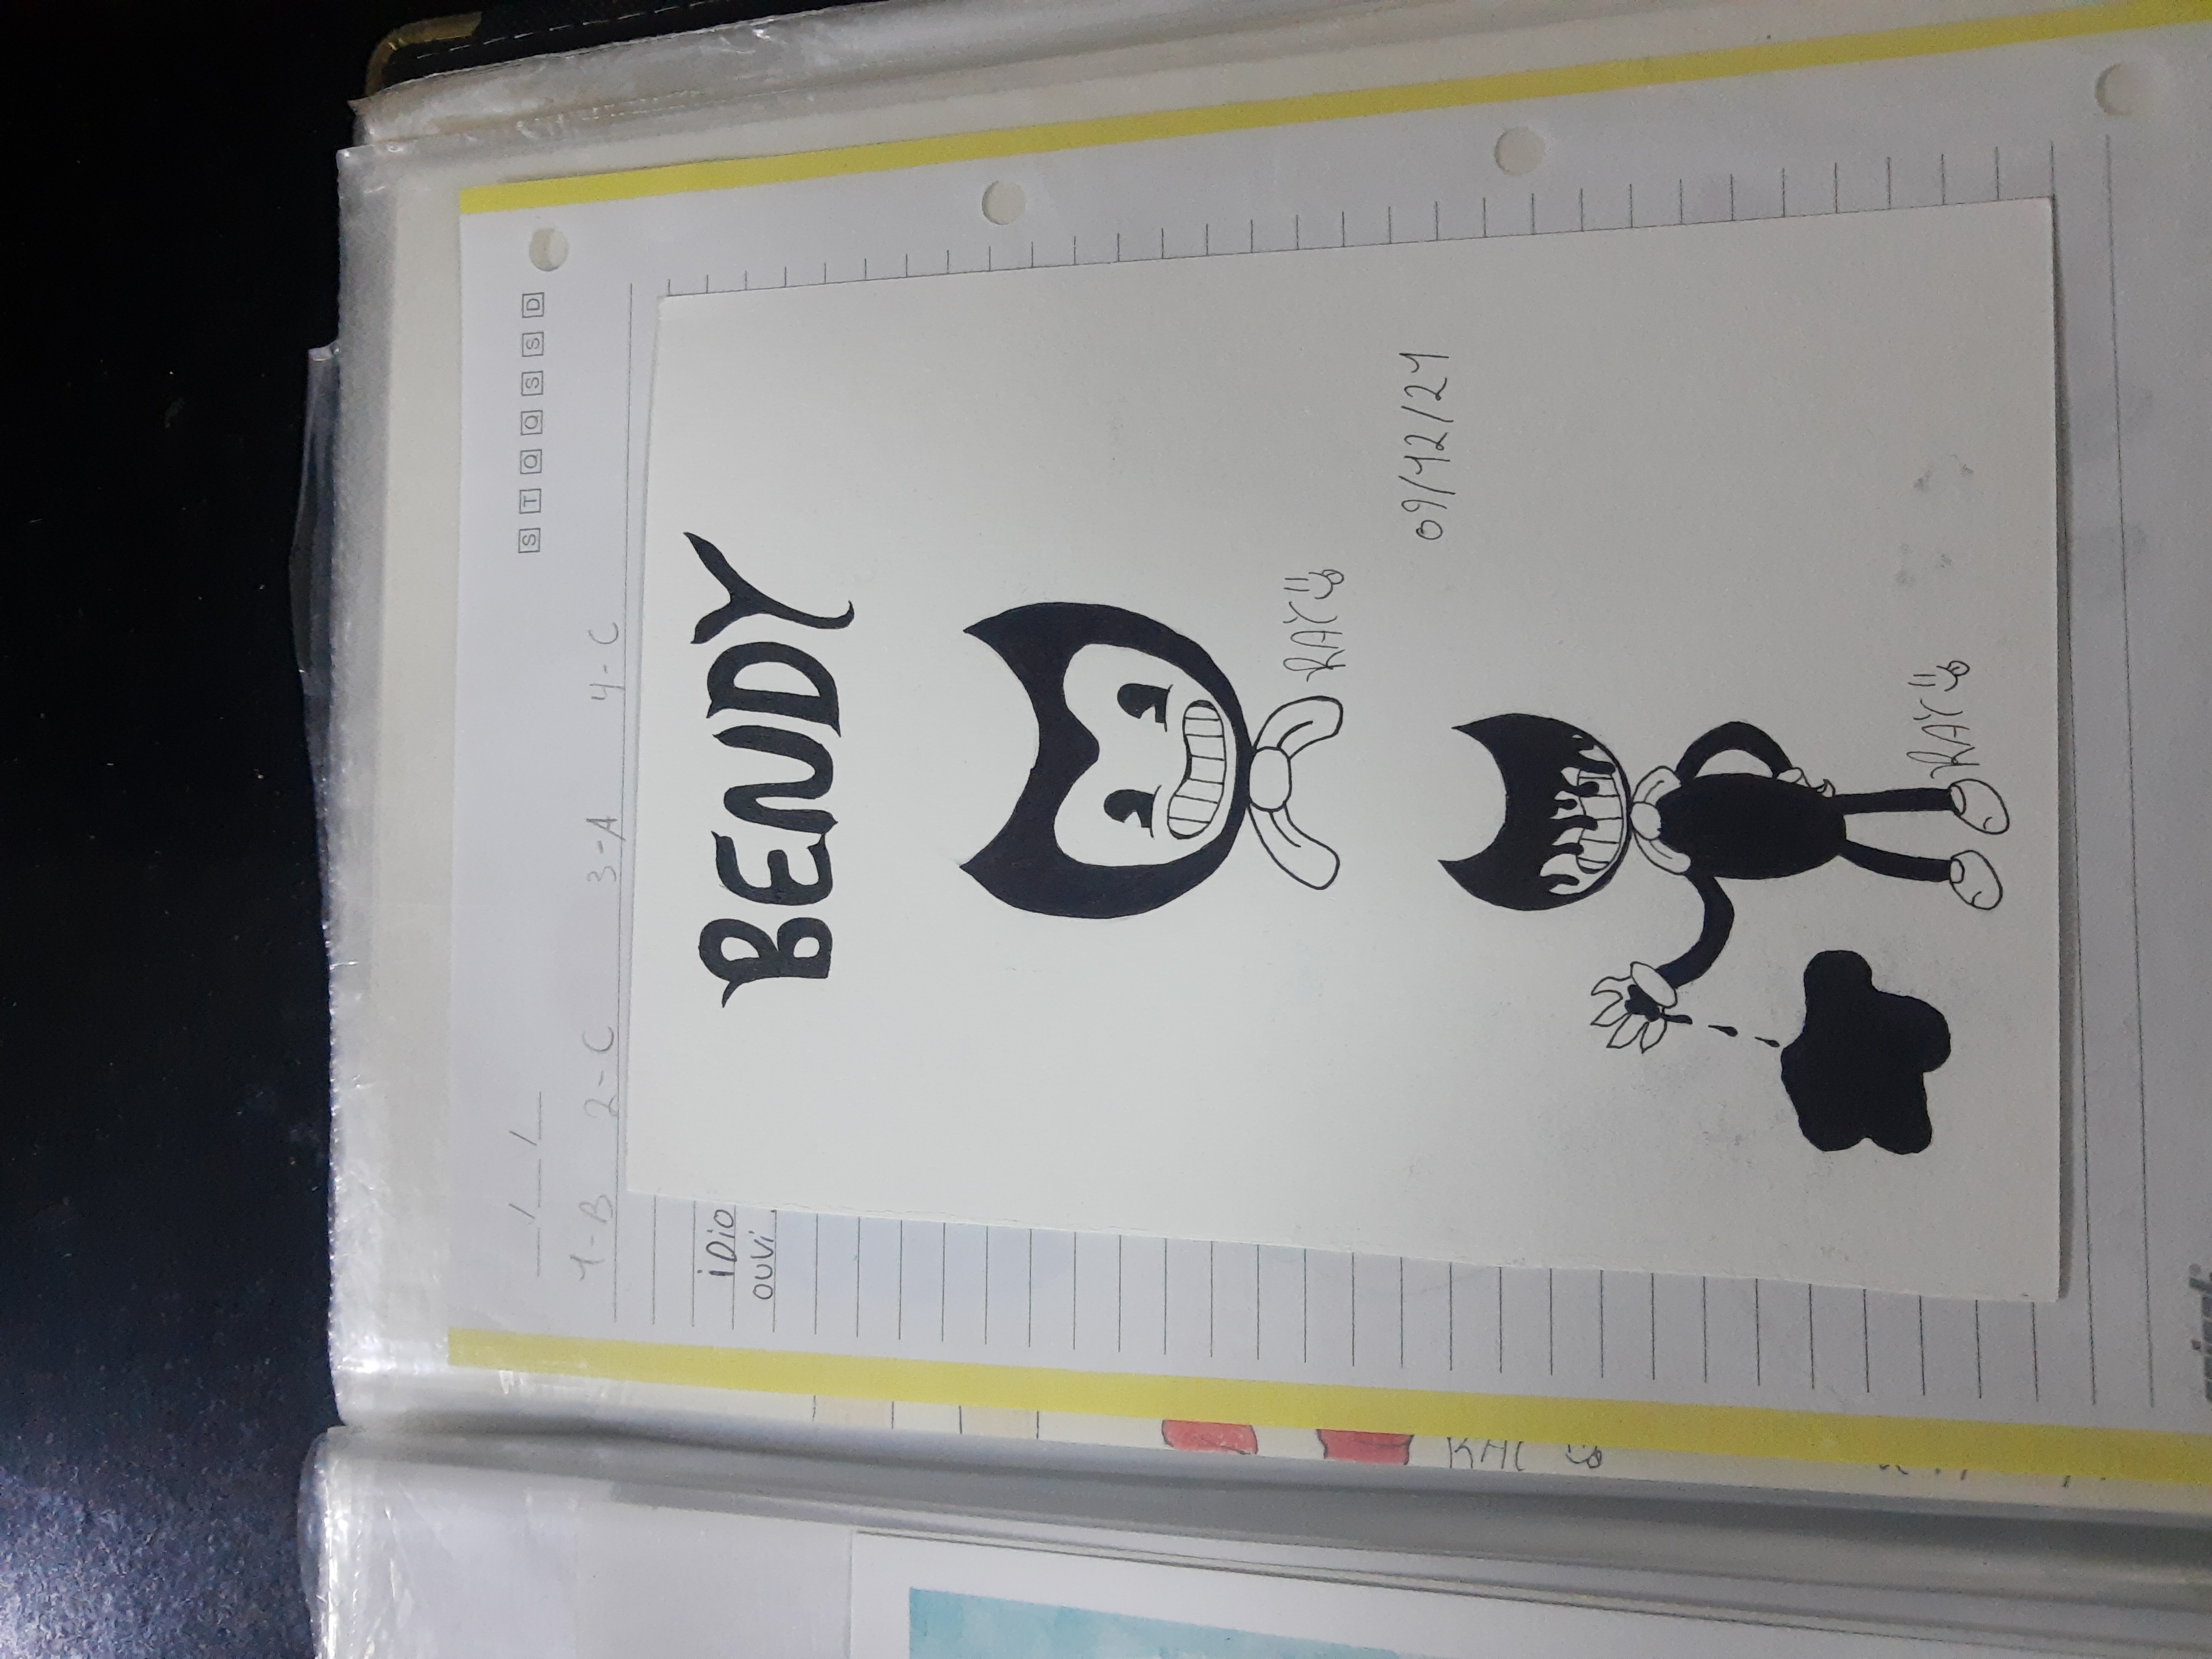 __/__/__
S T Q Q S S D
1-B 2-C 3-A 4-C
iDio
ouvi
BENDY
RAY
09/12/21
RAY